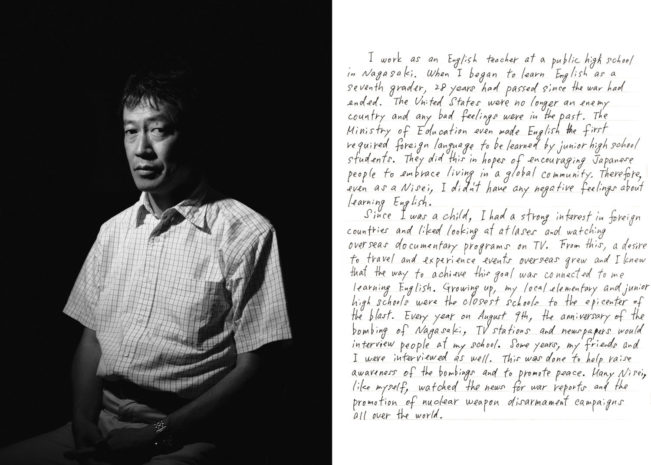 I work as an English teacher at a public high school
in Nagasaki. When I began to learn English as a
seventh grader, 28 years had passed since the war had
ended. The United States were no longer an enemy
country and any bad feelings were in the past. The
Ministry of Education even made English the first
required foreign language to be learned by junior high school
students. They did this in hopes of encouraging Japanese
people to embrace living in a global community. Therefore,
even as a Nisei, I didn't have any negative feelings about
learning English.
Since I was a child, I had a strong interest in foreign
countries and liked looking at atlases and watching
overseas documentary programs on TV. From this, a desire
to travel and experience events overseas grew and I knew
that the way to achieve this goal was connected to me
learning English. Growing up, my local elementary and junior
high schools were the closest schools to the epicenter of
the blast. Every year on August 9th, the anniversary of the
bombing of Nagasaki, TV stations and newspapers would
interview people at my school. Some years, my friends and
I were interviewed as well. This was done to help raise
awareness of the bombings and to promote peace. Many Nisei,
like myself, watched the news for war reports and the
promotion of nuclear weapon disarmament campaigns
all over the world.